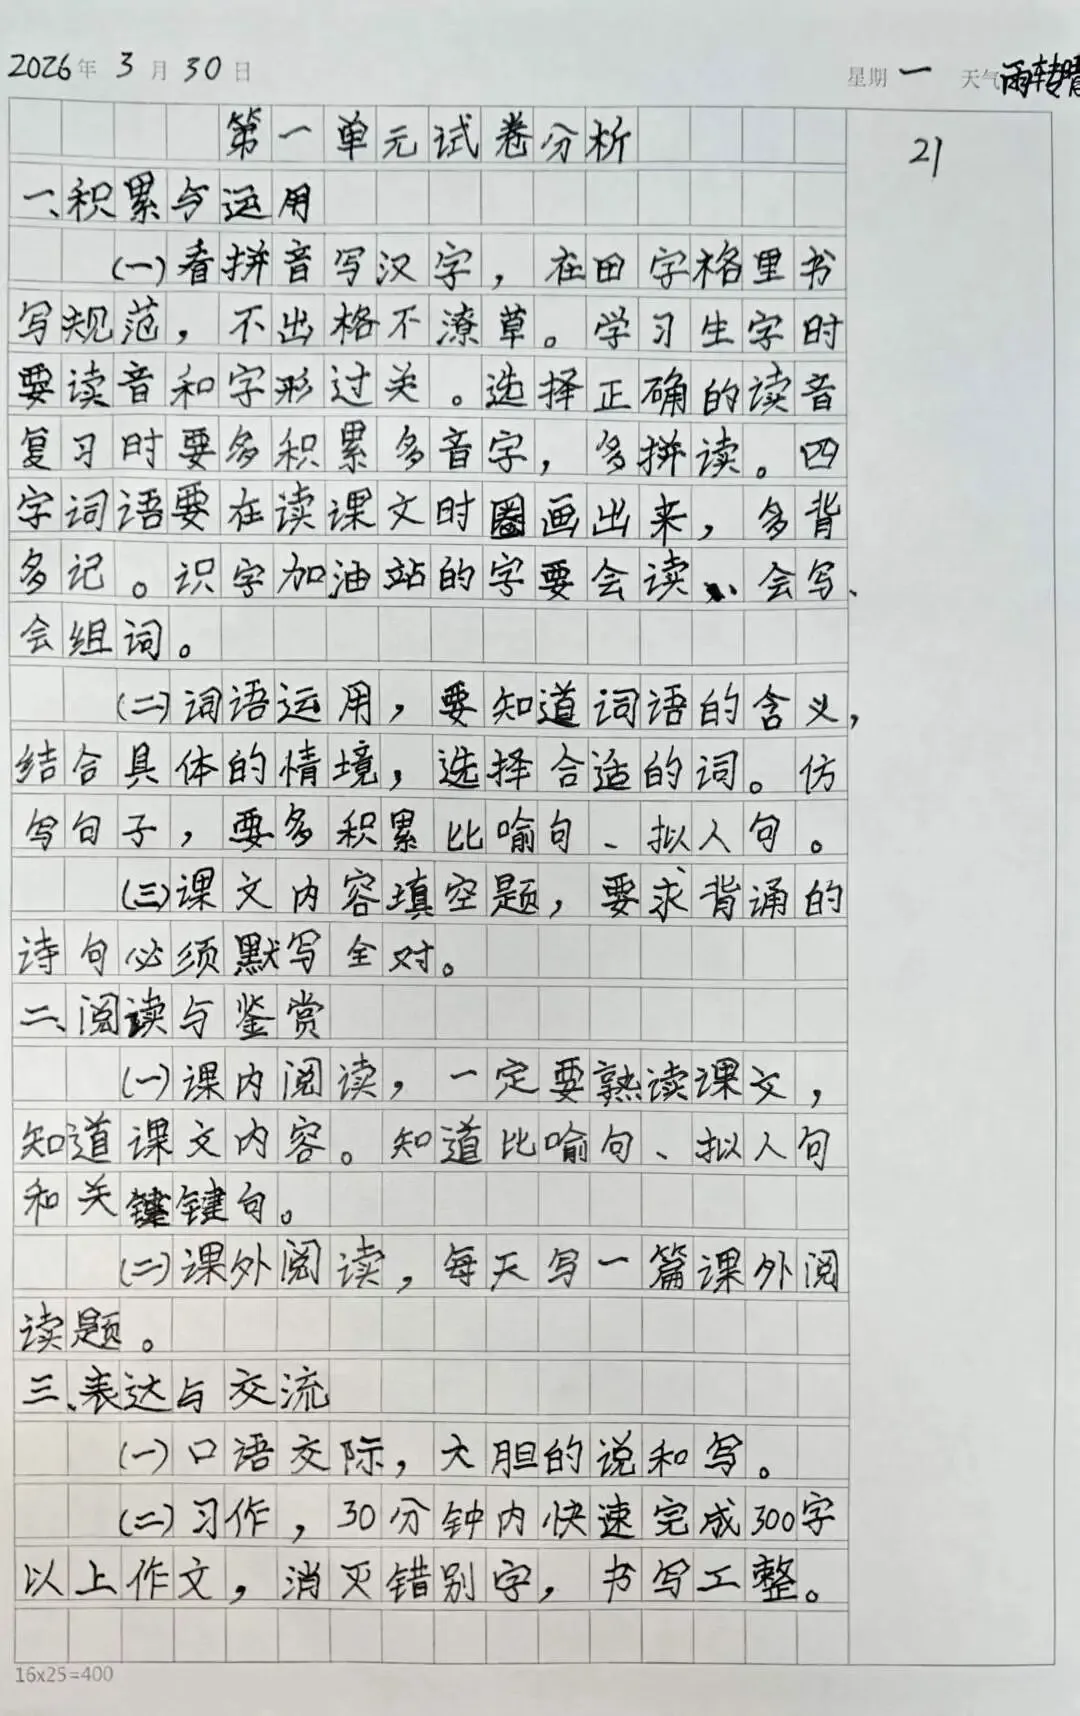 2026年 3月 30日 星期一 天气雨转晴
第一单元试卷分析
21
一、积累与运用
(一)看拼音写汉字，在田字格里书
写规范，不出格不潦草。学习生字时
要读音和字形过关。选择正确的读音
复习时要多积累多音字，多拼读。四
字词语要在读课文时圈画出来，多背
多记。识字加油站的字要会读、会写、
会组词。
(二)词语运用，要知道词语的含义，
结合具体的情境，选择合适的词。仿
写句子，要多积累比喻句、拟人句。
(三)课文内容填空题，要求背诵的
诗句必须默写全对。
二、阅读与鉴赏
(一)课内阅读，一定要熟读课文，
知道课文内容。知道比喻句、拟人句
和关键键句。
(二)课外阅读，每天写一篇课外阅
读题。
三、表达与交流
(一)口语交际，大胆的说和写。
(二)习作，30分钟内快速完成300字
以上作文，消灭错别字，书写工整。
16x25=400